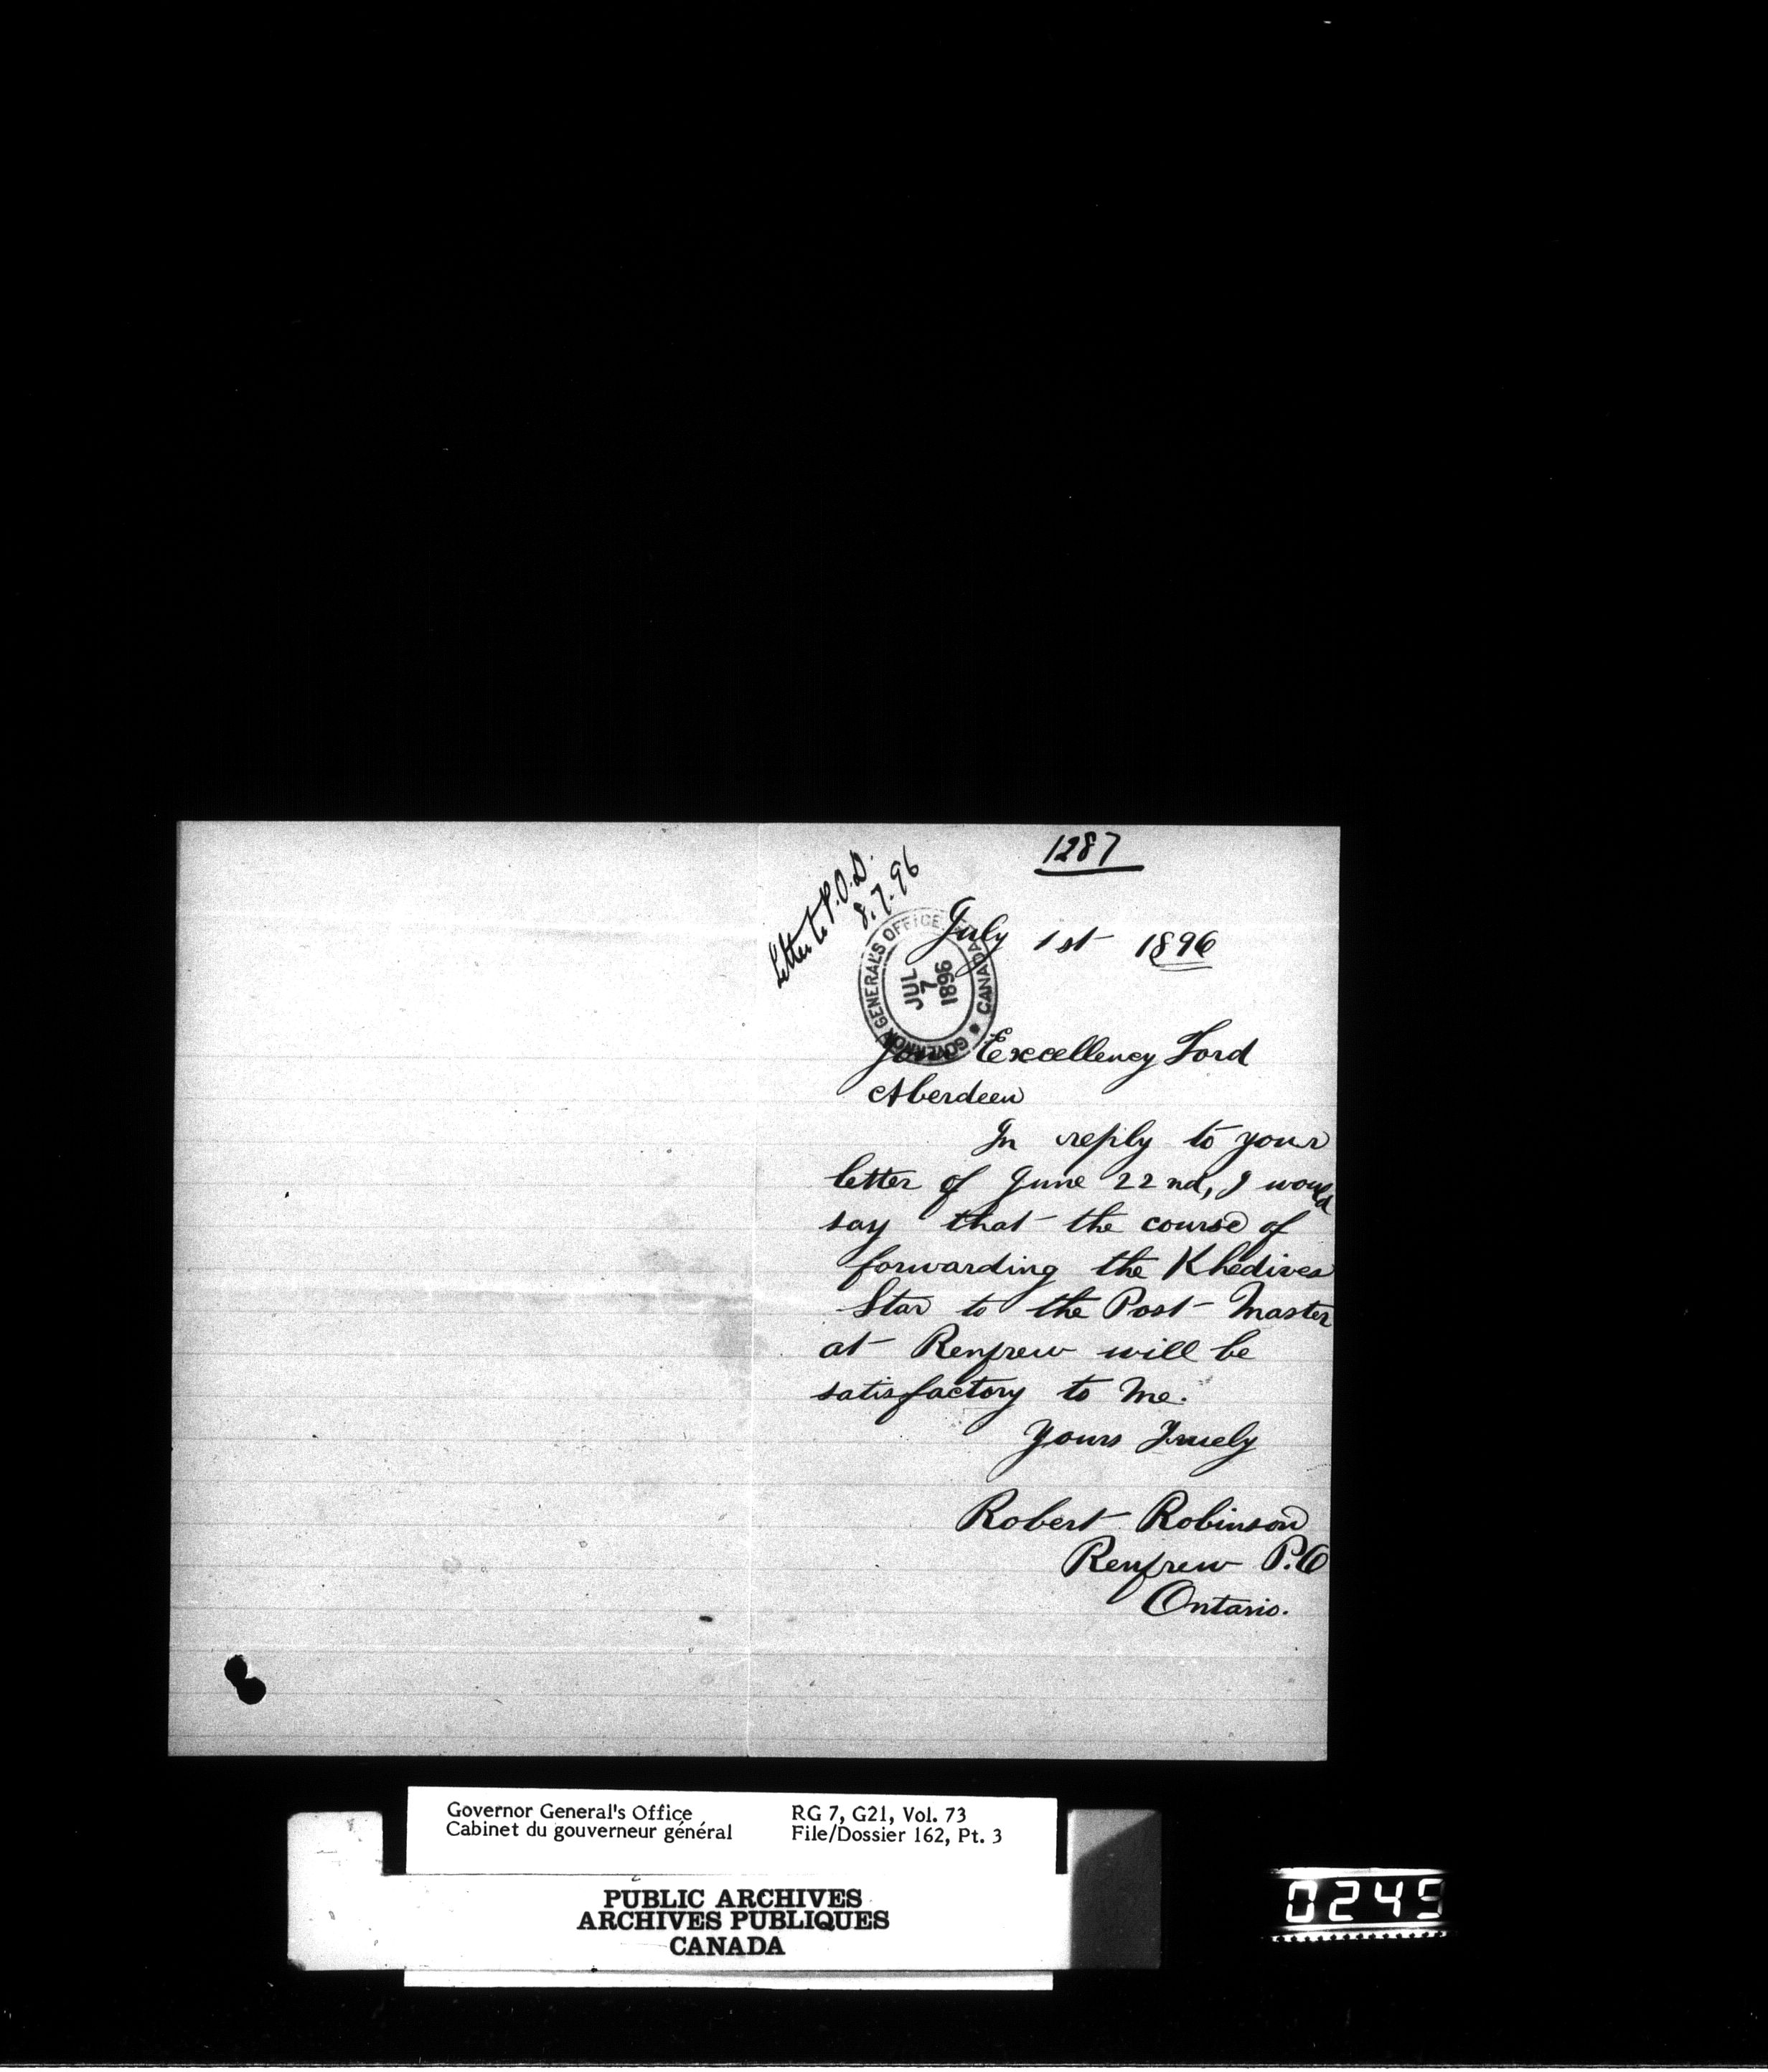 1287
Letter to P.O.D.
8.7.96
July 1st 1896
GOVERNOR GENERAL'S OFFICE CANADA
JUL
7
1896
Your Excellency Lord
Aberdeen
In reply to your
letter of June 22nd, I would
say that the course of
forwarding the Khedives
Star to the Post-Master
at Renfrew will be
satisfactory to me.
Yours Truely
Robert Robinson
Renfrew P.O
Ontario.
Governor General's Office
Cabinet du gouverneur général
RG 7, G21, Vol. 73
File/Dossier 162, Pt. 3
PUBLIC ARCHIVES
ARCHIVES PUBLIQUES
CANADA
0245